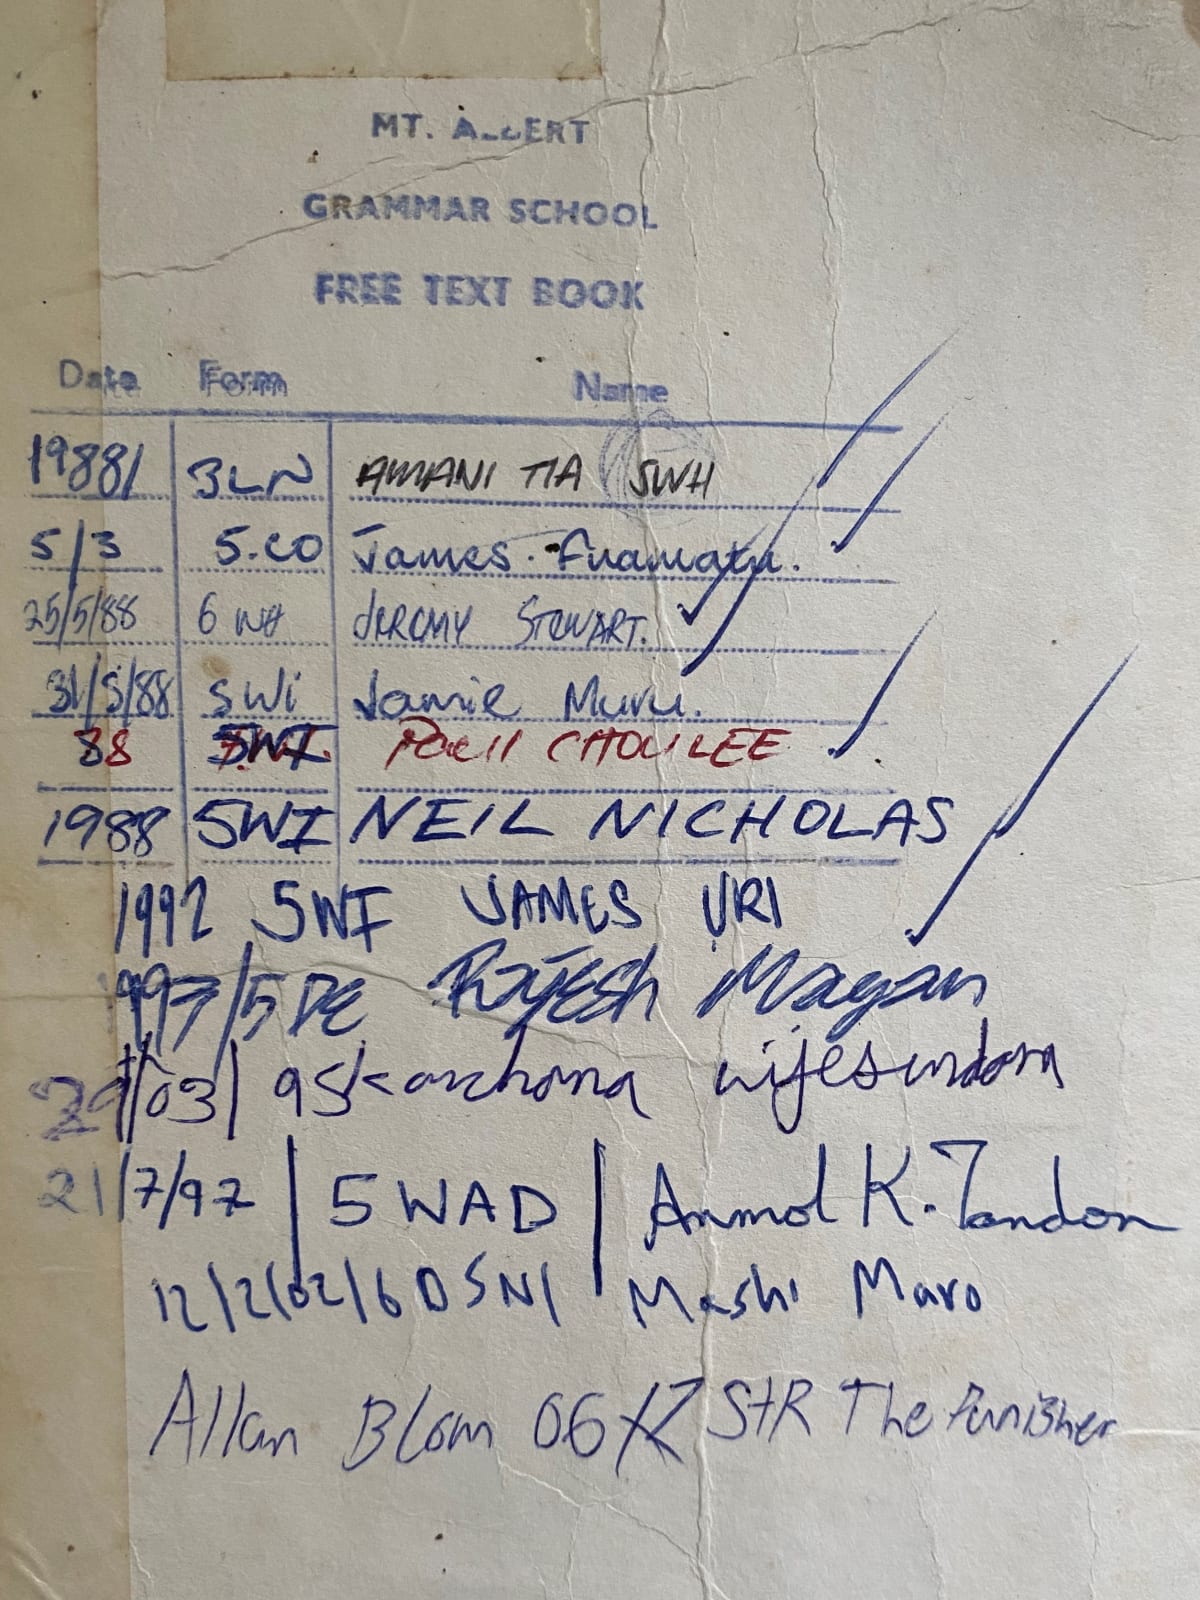 MT. ALBERT
GRAMMAR SCHOOL
FREE TEXT BOOK
Date Form Name
1988/ 3LN AMANI TIA SWH
5/3 5.CO James. Fuamatu.
25/5/88 6 WH JEREMY STEWART.
31/5/88 5Wi Jamie Muru.
88 5WI PAUL CHOU LEE
1988 5WI NEIL NICHOLAS
1992 5WI JAMES URI
1997/5DE Rajesh Magan
29/03/95 karchana wijesundara
21/7/97 | 5WAD | Anmol K. Tandon
12/2/02/6DSN/ Mashi Maro
Allan Blom 06 STR The Punisher